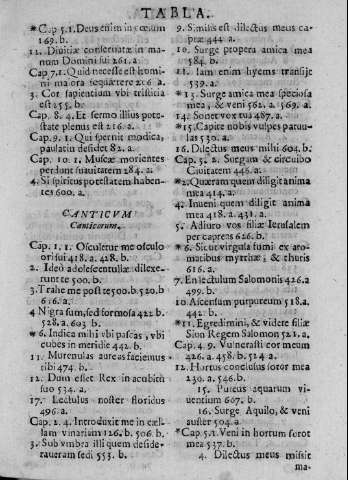 TABLA.
*Cap 5.1. Deus enim in cœlum
169. b.
12. Divitiæ conservatæ in ma-
num Domini sui 261. a.
Cap 7.1. Quid necesse est homi
ni ma ora sequærere 216. a.
3. Cor sapientium vbi tristitia
est 255. b.
Cap. 8. 4. Et sermo illius pote-
state plenus est 216. a.
Cap. 9. 1. Qui spernit modica,
paulatim desidet 82. a.
Cap. 10. 1. Muscæ morientes
perdunt suavitatem 284. a.
4. Si spiritus potestatem haben-
tes 600. a.
CANTICVM
Canticorum.
Cap. 1. 1. Osculetur me osculo
oris sui 418. a. 428. b.
2. Ideò adolescentullæ dilexe-
runt te 500. b.
3. Trahe me post te 500. b 520. b
616. a.
4 Nigra sum, sed formosa 422 b.
528. a. 603 b.
*6. Indica mihi vbi pascas, vbi
cubes in meridie 442. b.
11. Murenulas aureas faciemus
tibi 474. b.
12. Dum esset Rex in acubitu
suo 534. a.
17. Lectulus noster floridus
496. a.
Cap. 2. 4. Introduxit me in cæl-
lam vinariam 126. b. 506. b.
3. Sub vmbra illi quem deside-
raveram sedi 553. b.
9. Similis est dilectus meus ca-
præ 444. a.
10. Surge propera amica mea
584. b.
11. Iam enim hyems transije
539. a.
*13. Surge amica mea speciosa
mea, & veni 562. a. 569. a.
14. Sonet vox tua 487. a.
*15. Capite nobis vulpes parvu-
las 530. a.
16. Dilectus meus mihi 604. b.
Cap. 3. 2. Surgam & circuibo
Civitatem 446. a.
*2. Quæram quem diligit anima
mea 414. a.
4. Inveni quem diligit anima
mea 418. a. 431. a.
5. Adiuro vos filiæ Ierusalem
per capreas 626. b.
*6. Sicut virgula fumi ex aro-
matibus myrrhiæ, & thuris
616. a.
7. En lectulum Salomonis 426. a
499. b.
10 Ascensum purpureum 518. a.
442. b.
*11. Egredimini, & videte filiæ
Sion Regem Salomon 521. a.
Cap. 4. 9. Vulnerasti cor meum
426. a. 458. b. 524 a.
12. Hortus conclusus soror mea
230. a. 546. b.
15. Puteus aquarum vi-
ventium 607. b.
16. Surge Aquilo, & veni
auster 504. a.
*Cap. 5. 1. Veni in hortum soror
mea 537. b.
4. Dilectus meus missit
ma-